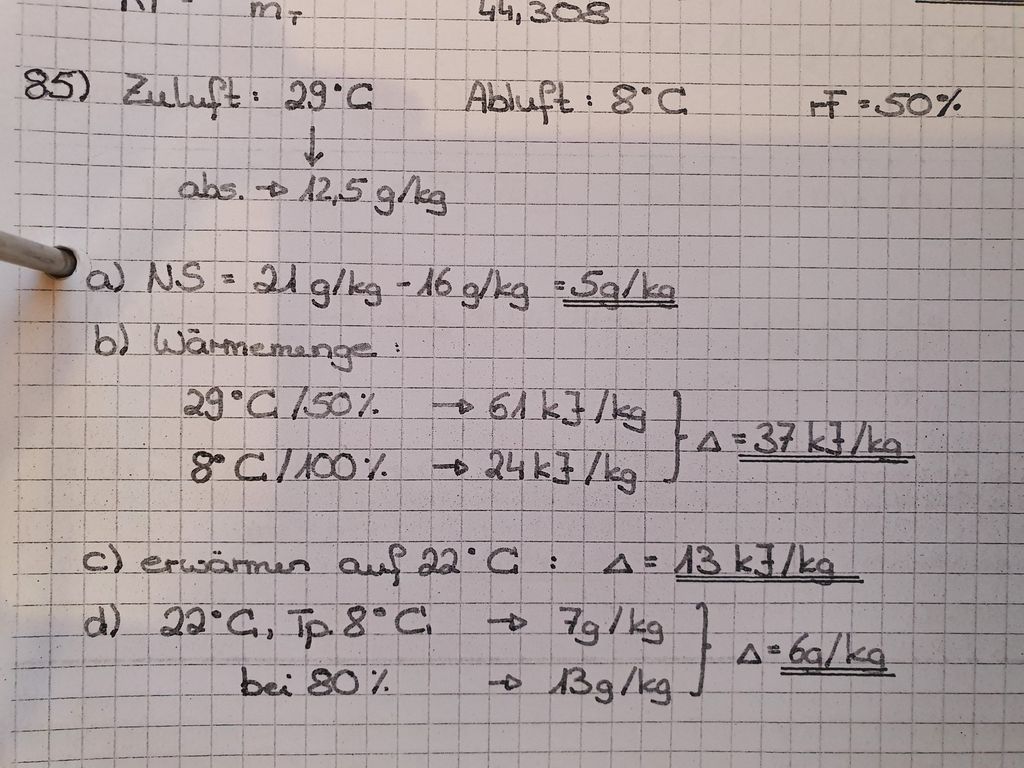 mT 44,308
85) Zuluft: 29°C Abluft: 8°C rF = 50%
↓
abs. → 12,5 g/kg
a) NS = 21 g/kg - 16 g/kg = 5g/kg
b) Wärmemenge:
29°C/50% → 61 kJ/kg
Δ = 37 kJ/kg
8°C/100% → 24 kJ/kg
c) erwärmen auf 22°C: Δ = 13 kJ/kg
d) 22°C, Tp. 8°C → 7g/kg
Δ = 6g/kg
bei 80% → 13g/kg